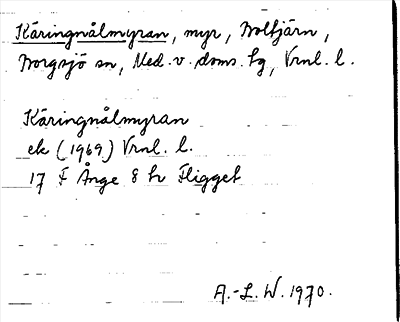 Käringnålmyran, myr, Boltjärn,
Borgsjö sn, Med. v. doms. tg, Vrnl. l.
Käringnålmyran
ek (1969) Vrnl. l.
17 F Ånge 8 h Fligget
A.-L. W. 1970.